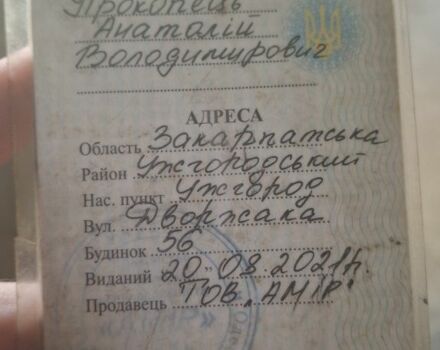 Прокопець
Анатолій
Володимирович
АДРЕСА
Область Закарпатська
Район Ужгородський
Нас. пункт Ужгород
Вул. Дворжака
Будинок 56
Виданий 20.08.2021р.
Продавець ТОВ "АМІР"